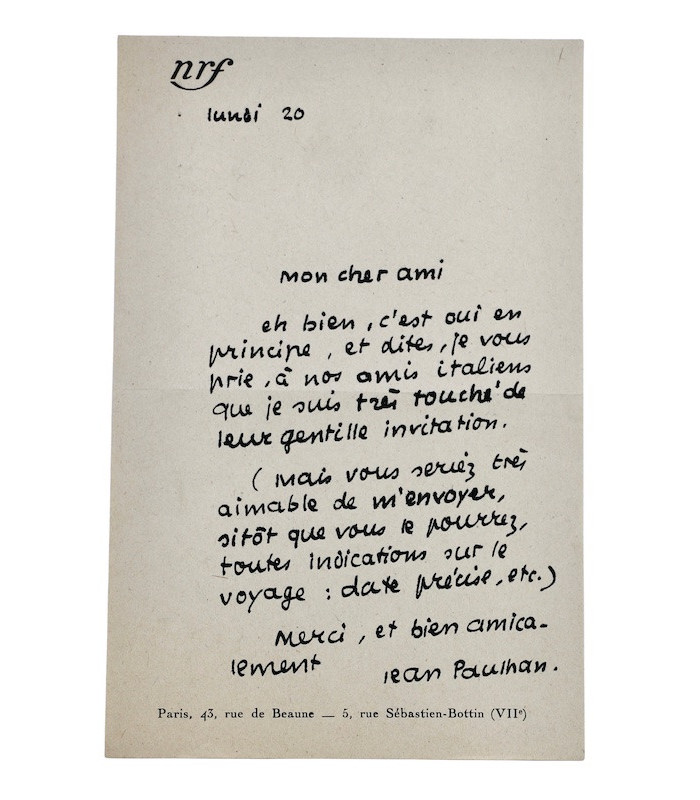 nrf
lundi 20
Mon cher ami
eh bien, c'est oui en
principe, et dites, je vous
prie, à nos amis italiens
que je suis très touché de
leur gentille invitation.
(Mais vous seriez très
aimable de m'envoyer,
sitôt que vous le pourrez,
toutes indications sur le
voyage : date précise, etc.)
Merci, et bien amica-
lement
Jean Paulhan.
Paris, 43, rue de Beaune — 5, rue Sébastien-Bottin (VIIe)